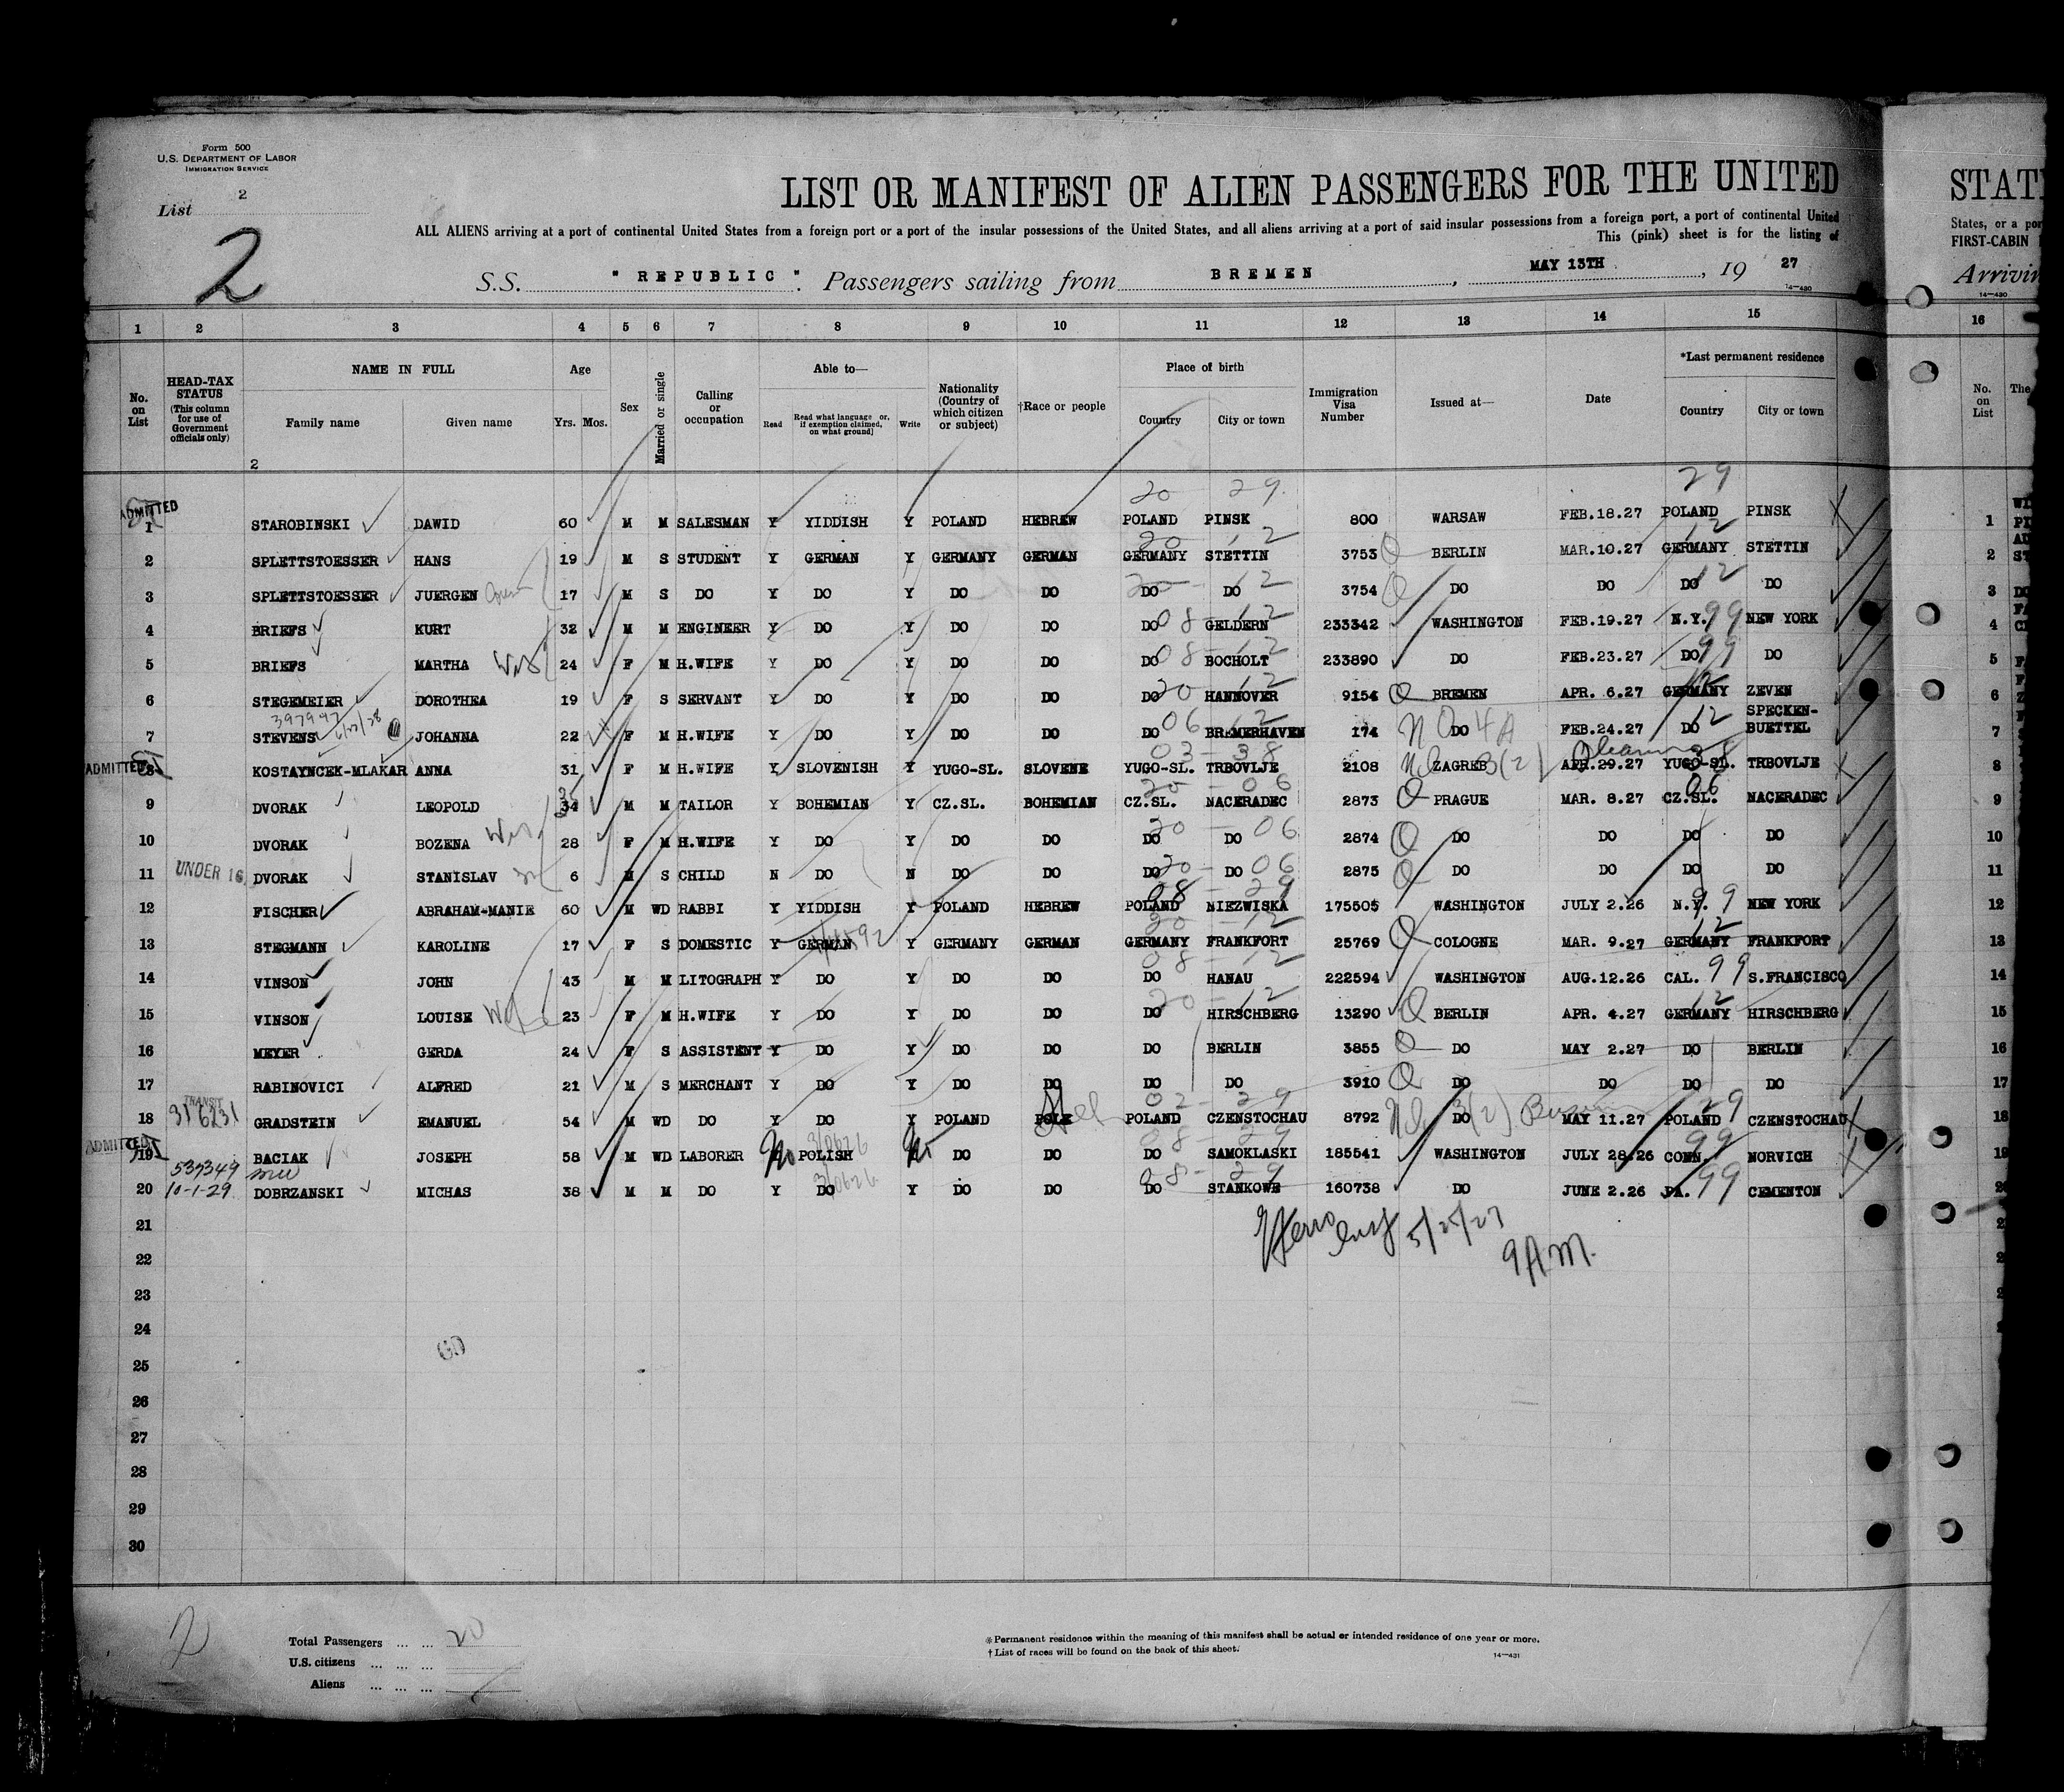 Form 500
U.S. DEPARTMENT OF LABOR
IMMIGRATION SERVICE
List 2
2
LIST OR MANIFEST OF ALIEN PASSENGERS FOR THE UNITED
ALL ALIENS arriving at a port of continental United States from a foreign port or a port of the insular possessions of the United States, and all aliens arriving at a port of said insular possessions from a foreign port, a port of continental United
This (pink) sheet is for the listing of
S.S. "REPUBLIC". Passengers sailing from BREMEN, MAY 13TH, 19 27
14—430
STAT
States, or a por
FIRST-CABIN
Arrivin
14—430
1 2 3 4 5 6 7 8 9 10 11 12 13 14 15 16
No. on List HEAD-TAX STATUS (This column for use of Government officials only) NAME IN FULL Family name Given name Age Yrs. Mos. Sex Married or single Calling or occupation Able to— Read Read what language or, if exemption claimed, on what ground] Write Nationality (Country of which citizen or subject) †Race or people Place of birth Country City or town Immigration Visa Number Issued at— Date *Last permanent residence Country City or town No. on List The
2
20 29 29
ADMITTED
1 STAROBINSKI DAWID 60 M M SALESMAN Y YIDDISH Y POLAND HEBREW POLAND PINSK 800 WARSAW FEB.18.27 POLAND PINSK 1
2 SPLETTSTOESSER HANS 19 M S STUDENT Y GERMAN Y GERMANY GERMAN GERMANY STETTIN 3753 BERLIN MAR.10.27 GERMANY STETTIN 2
3 SPLETTSTOESSER JUERGEN 17 M S DO Y DO Y DO DO DO DO 3754 DO DO DO DO 3
4 BRIEFS KURT 32 M M ENGINEER Y DO Y DO DO DO GELDERN 233342 WASHINGTON FEB.19.27 N.Y. 99 NEW YORK 4
5 BRIEFS MARTHA 24 F M H.WIFE Y DO Y DO DO DO BOCHOLT 233890 DO FEB.23.27 DO 99 DO 5
6 STEGEMEIER DOROTHEA 19 F S SERVANT Y DO Y DO DO DO HANNOVER 9154 BREMEN APR. 6.27 GERMANY ZEVEN 6
7 STEVENS JOHANNA 22 F M H.WIFE Y DO Y DO DO DO BREMERHAVEN 174 DO FEB.24.27 DO SPECKEN-BUETTEL 7
ADMITTED
8 KOSTAYNCEK-MLAKAR ANNA 31 F M H.WIFE Y SLOVENISH Y YUGO-SL. SLOVENE YUGO-SL. TRBOVLJE 2108 ZAGREB APR.29.27 YUGO-SL. TRBOVLJE 8
9 DVORAK LEOPOLD 34 M M TAILOR Y BOHEMIAN Y CZ.SL. BOHEMIAN CZ.SL. NACERADEC 2873 PRAGUE MAR. 8.27 CZ.SL. NACERADEC 9
10 DVORAK BOZENA 28 F M H.WIFE Y DO Y DO DO DO DO 2874 DO DO DO DO 10
11 UNDER 16 DVORAK STANISLAV 6 M S CHILD N DO N DO DO DO DO 2875 DO DO DO DO 11
12 FISCHER ABRAHAM-MANIE 60 M WD RABBI Y YIDDISH Y POLAND HEBREW POLAND NIEZWISKA 175505 WASHINGTON JULY 2.26 N.Y. 99 NEW YORK 12
13 STEGMANN KAROLINE 17 F S DOMESTIC Y GERMAN Y GERMANY GERMAN GERMANY FRANKFORT 25769 COLOGNE MAR. 9.27 GERMANY FRANKFORT 13
14 VINSON JOHN 43 M M LITOGRAPH Y DO Y DO DO DO HANAU 222594 WASHINGTON AUG.12.26 CAL. 99 S.FRANCISCO 14
15 VINSON LOUISE 23 F M H.WIFE Y DO Y DO DO DO HIRSCHBERG 13290 BERLIN APR. 4.27 GERMANY HIRSCHBERG 15
16 MEYER GERDA 24 F S ASSISTENT Y DO Y DO DO DO BERLIN 3855 DO MAY 2.27 DO BERLIN 16
17 RABINOVICI ALFRED 21 M S MERCHANT Y DO Y DO DO DO DO 3910 DO DO DO DO 17
TRANSIT
18 316231 GRADSTEIN EMANUEL 54 M WD DO Y DO Y POLAND POLE POLAND CZENSTOCHAU 8792 DO MAY 11.27 POLAND CZENSTOCHAU 18
ADMITTED
19 BACIAK JOSEPH 58 M WD LABORER No POLISH No DO DO DO SAMOKLASKI 185541 WASHINGTON JULY 28.26 CONN. NORVICH 19
537349
20 10-1-29 DOBRZANSKI MICHAS 38 M M DO Y DO Y DO DO DO STANKOWE 160738 DO JUNE 2.26 PA. 99 CEMENTON
21
5/25/27
22
9 A.M.
23
24
25
26
27
28
29
30
2
Total Passengers ... ... 20
U.S. citizens ... ... ...
Aliens ... ... ...
*Permanent residence within the meaning of this manifest shall be actual or intended residence of one year or more.
†List of races will be found on the back of this sheet.
14—431